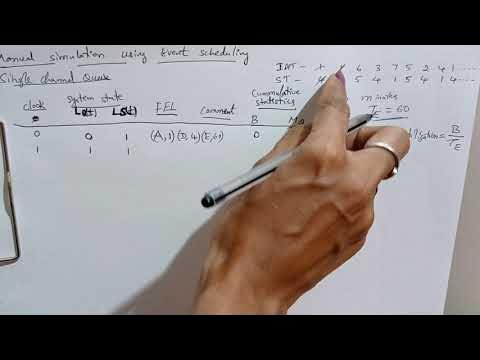 Manual simulation using Event scheduling
Single channel Queue
IAT - 1 1 6 3 7 5 2 4 1 ....
ST - 4 2 5 4 1 5 4 1 4 ....
clock System state FEL Comment Cumulative statistics
LQ(t) LS(t) B MQ
minutes
TE = 60
= B/TE
0 0 1 (A, 1) (D, 4) (E, 60) 0
1 1 1